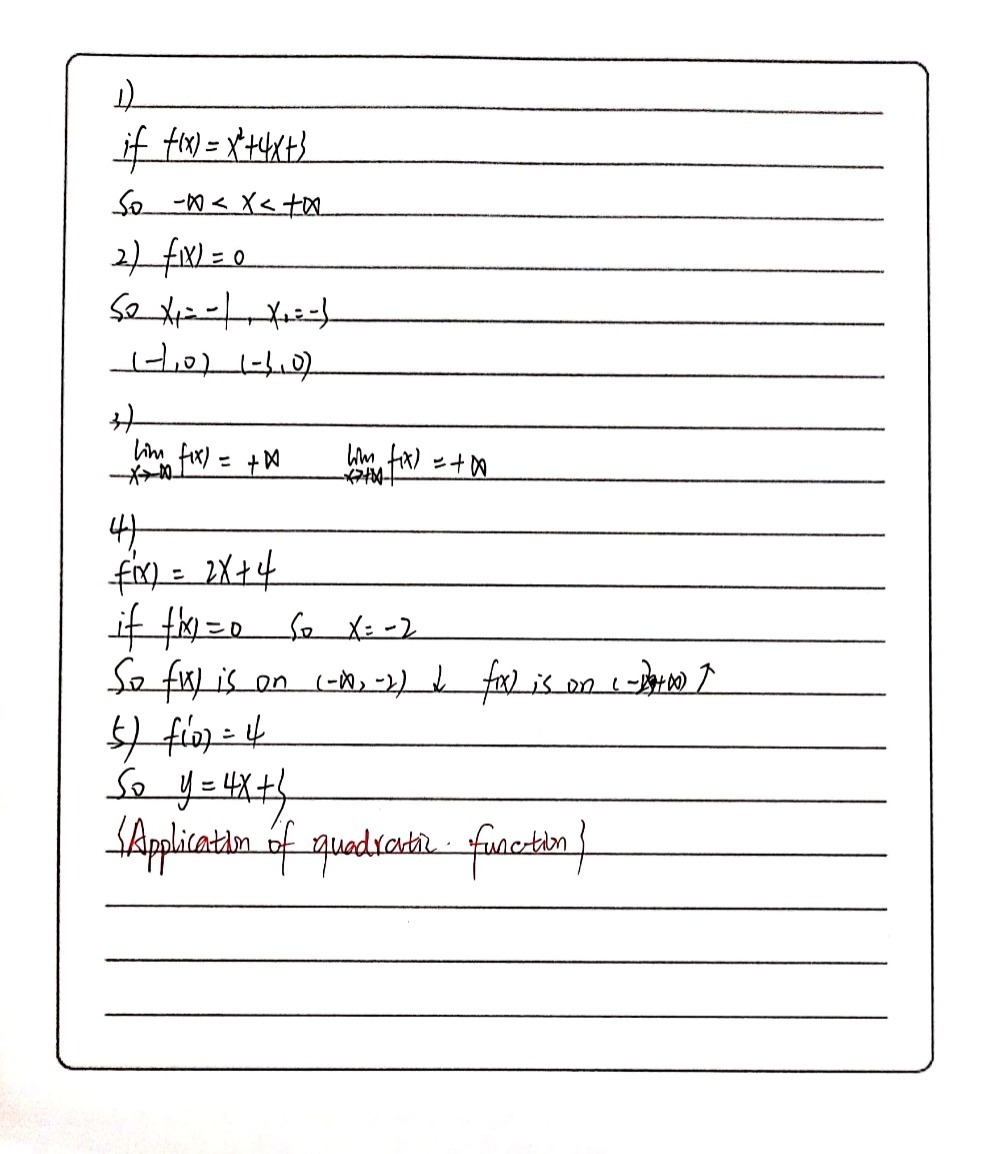 1)
if f(x) = x²+4x+3
So -∞ < x < +∞
2) f(x) = 0
So x₁ = -1, x₂ = -3
(-1,0) (-3,0)
3)
lim x→-∞ f(x) = +∞ lim x→+∞ f(x) = +∞
4)
f'(x) = 2x+4
if f'(x) = 0 So x = -2
So f(x) is on (-∞, -2) ↓ f(x) is on (-2,+∞) ↑
5) f'(0) = 4
So y = 4x+3
{Application of quadratic. function}